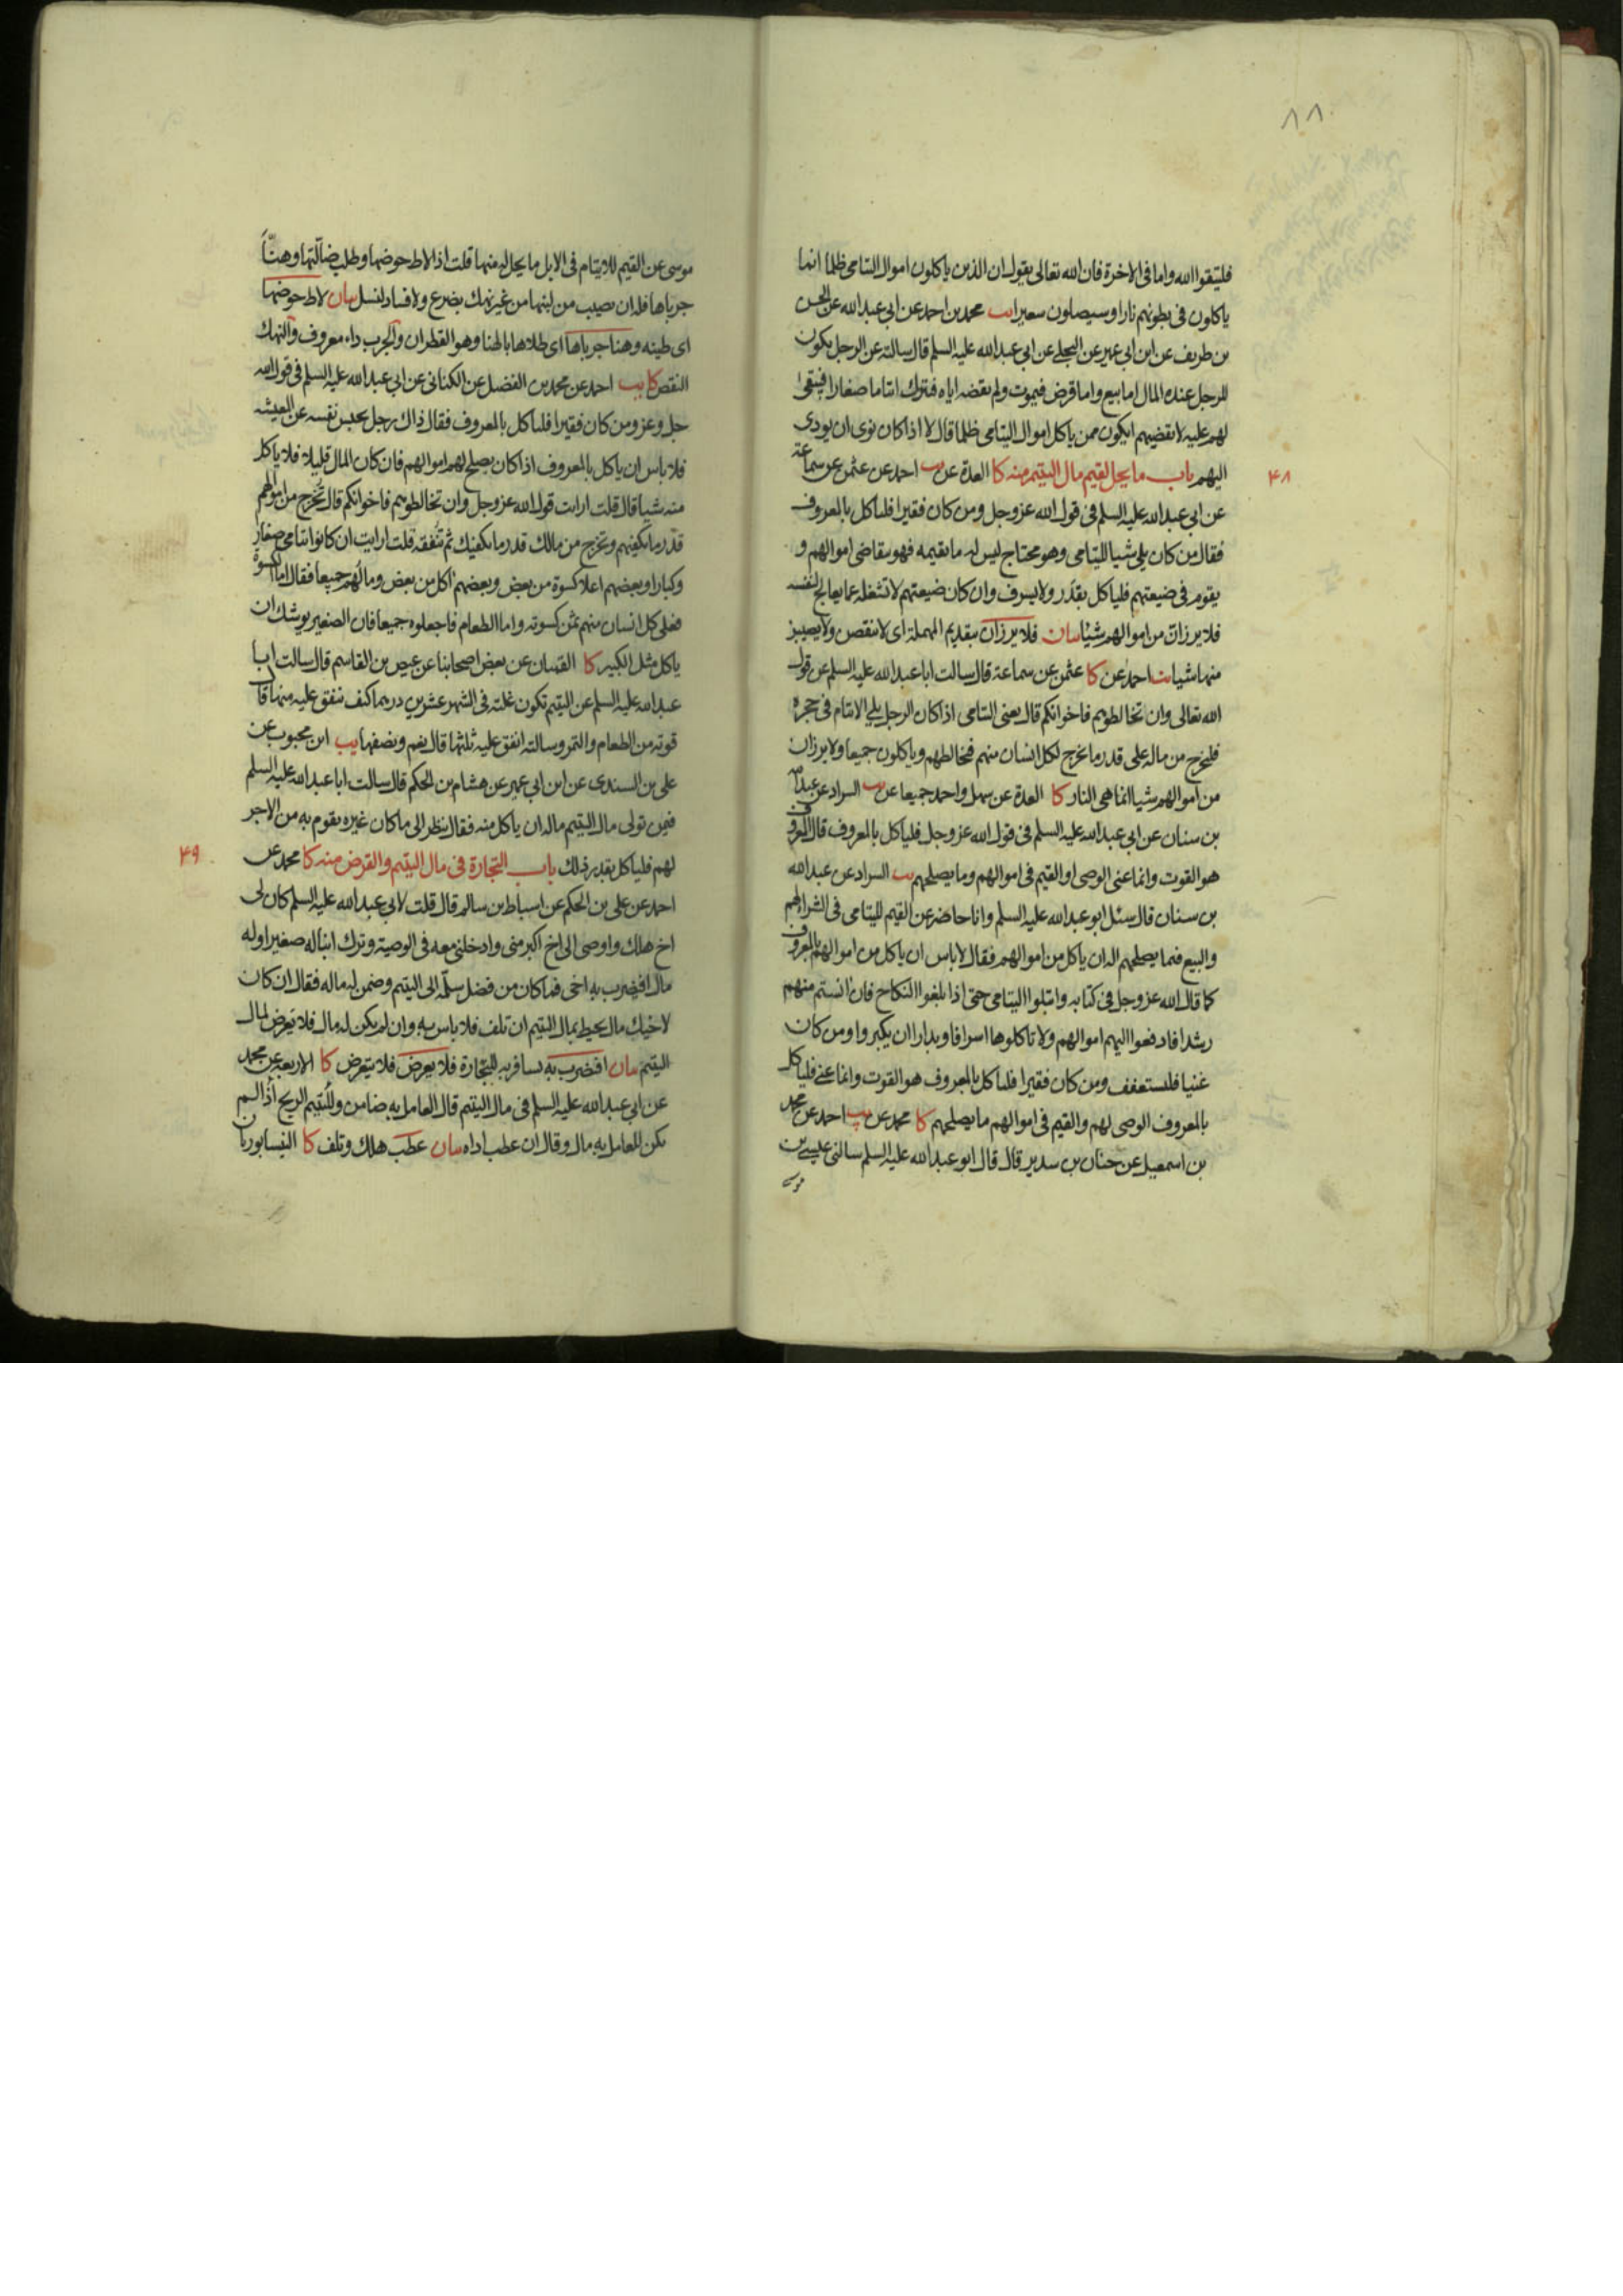 ٨٨
فليتقوا الله واما فى الاخرة فان الله تعالى يقول ان الذين ياكلون اموال اليتامى ظلما انما
ياكلون فى بطونهم نارا وسيصلون سعيرا يب محمد بن احمد عن ابى عبد الله عن الحسن
بن طريف عن ابن ابى عمير عن البجلى عن ابى عبد الله عليه السلم قال سالته عن الرجل يكون
للرجل عنده المال اما بيع واما قرض فيموت ولم يقضه اياه فيترك ايتاما صغارا فيبقى
لهم عليه لا يقضيهم ايكون ممن ياكل اموال اليتامى ظلما قال لا اذا كان نوى ان يودى
اليهم باب ما يحل لقيم مال اليتيم منه كا العدة عن يب احمد عن عثمن عن سماعة
۴۸
عن ابى عبد الله عليه السلم فى قول الله عز وجل ومن كان فقيرا فليأكل بالمعروف
فقال من كان يلى شيا لليتامى وهو محتاج ليس له ما يقيمه فهو يتقاضى اموالهم و
يقوم فى ضيعتهم فلياكل بقدر ولا يسرف وان كان ضيعتهم لا تشغله عما يعالج لنفسه
فلا يرزان من اموالهم شيئا بيان فلا يرزان بتقديم المهملة اى لا ينقص ولا يصيبن
منها شيا يب احمد عن كا عثمن عن سماعة قال سالت ابا عبد الله عليه السلم عن قول
الله تعالى وان تخالطوهم فاخوانكم قال يعنى اليتامى اذا كان الرجل يلى الايتام فى حجره
فليخرج من ماله على قدر ما يخرج لكل انسان منهم فيخالطهم وياكلون جميعا ولا يرزان
من اموالهم شيا انما هى النار كا العدة عن سهل واحمد جميعا عن يب السراد عن عبد الله
بن سنان عن ابى عبد الله عليه السلم فى قول الله عز وجل فلياكل بالمعروف قال المعروف
هو القوت وانما عنى الوصى او القيم فى اموالهم وما يصلحهم يب السراد عن عبد الله
بن سنان قال سئل ابو عبد الله عليه السلم وانا حاضر عن القيم لليتامى فى الشراء لهم
والبيع فيما يصلحهم اله ان ياكل من اموالهم فقال لا باس ان ياكل من اموالهم بالمعروف
كما قال الله عز وجل فى كتابه وابتلوا اليتامى حتى اذا بلغوا النكاح فان انستم منهم
رشدا فادفعوا اليهم اموالهم ولا تاكلوها اسرافا وبدارا ان يكبروا ومن كان
غنيا فليستعفف ومن كان فقيرا فلياكل بالمعروف هو القوت وانما عنى فلياكل
بالمعروف الوصى لهم والقيم فى اموالهم ما يصلحهم كا محمد عن يب احمد عن محمد
بن اسمعيل عن حنان بن سدير قال قال ابو عبد الله عليه السلم سالنى عيسى بن
موسى
موسى عن القيم للايتام فى الابل ما يحل له منها قلت اذا لاط حوضها وطلب ضالّتها وهنّأ
جرباها فله ان يصيب من لبنها من غير نهك بضرع ولا فساد لنسل بيان لاط حوضها
اى طينه وهنا جرباها اى طلاها بالهنا وهو القطران والجرب داء معروف والنهك
النقص كا يب احمد عن محمد بن الفضل عن الكنانى عن ابى عبد الله عليه السلم فى قول الله
جل وعز ومن كان فقيرا فلياكل بالمعروف فقال ذاك رجل يحبس نفسه عن المعيشه
فلا باس ان ياكل بالمعروف اذا كان يصلح لهم اموالهم فان كان المال قليلا فلا ياكل
منه شيا قال قلت ارايت قول الله عز وجل وان تخالطوهم فاخوانكم قال تخرج من اموالهم
قدر ما يكفيهم وتخرج من مالك قدر ما يكفيك ثم تنفقه قلت ارايت ان كانوا يتامى صغار
وكبارا وبعضهم اعلا كسوة من بعض وبعضهم اكل من بعض ومالهم جميعا فقال اما الكسوة
فعلى كل انسان منهم ثمن كسوته واما الطعام فاجعلوه جميعا فان الصغير يوشك ان
ياكل مثل الكبير كا القميان عن بعض اصحابنا عن عيص بن القاسم قال سالت ابا
عبد الله عليه السلم عن اليتيم تكون غلته فى الشهر عشرين درهما كيف ننفق عليه منها قال
قوته من الطعام والتمر وسالته انفق عليه ثلثها قال نعم ونصفها يب ابن محبوب عن
على بن السندى عن ابن ابى عمير عن هشام بن الحكم قال سالت ابا عبد الله عليه السلم
فيمن تولى مال اليتيم ماله ان ياكل منه فقال ينظر الى ما كان غيره يقوم به من الاجر
لهم فلياكل بقدر ذلك باب التجارة فى مال اليتيم والقرض منه كا محمد عن
۴۹
احمد عن على بن الحكم عن اسباط بن سالم قال قلت لابى عبد الله عليه السلم كان لى
اخ هلك واوصى الى اخ اكبر منى وادخلنى معه فى الوصية وترك ابنا له صغيرا وله
مال افيضرب به اخى فما كان من فضل سلّمه الى اليتيم وضمن له ماله فقال ان كان
لاخيك مال يحيط بمال اليتيم ان تلف فلا باس به وان لم يكن له مال فلا يعرض لمال
اليتيم بيان افيضرب به يسافر به للتجارة فلا يعرض فلا يتعرض كا الاربعة عن محمد
عن ابى عبد الله عليه السلم فى مال اليتيم قال العامل به ضامن ولليتيم الربح اذا لم
يكن للعامل به مال وقال ان عطب اداه بيان عطب هلك وتلف كا النيسابوريان